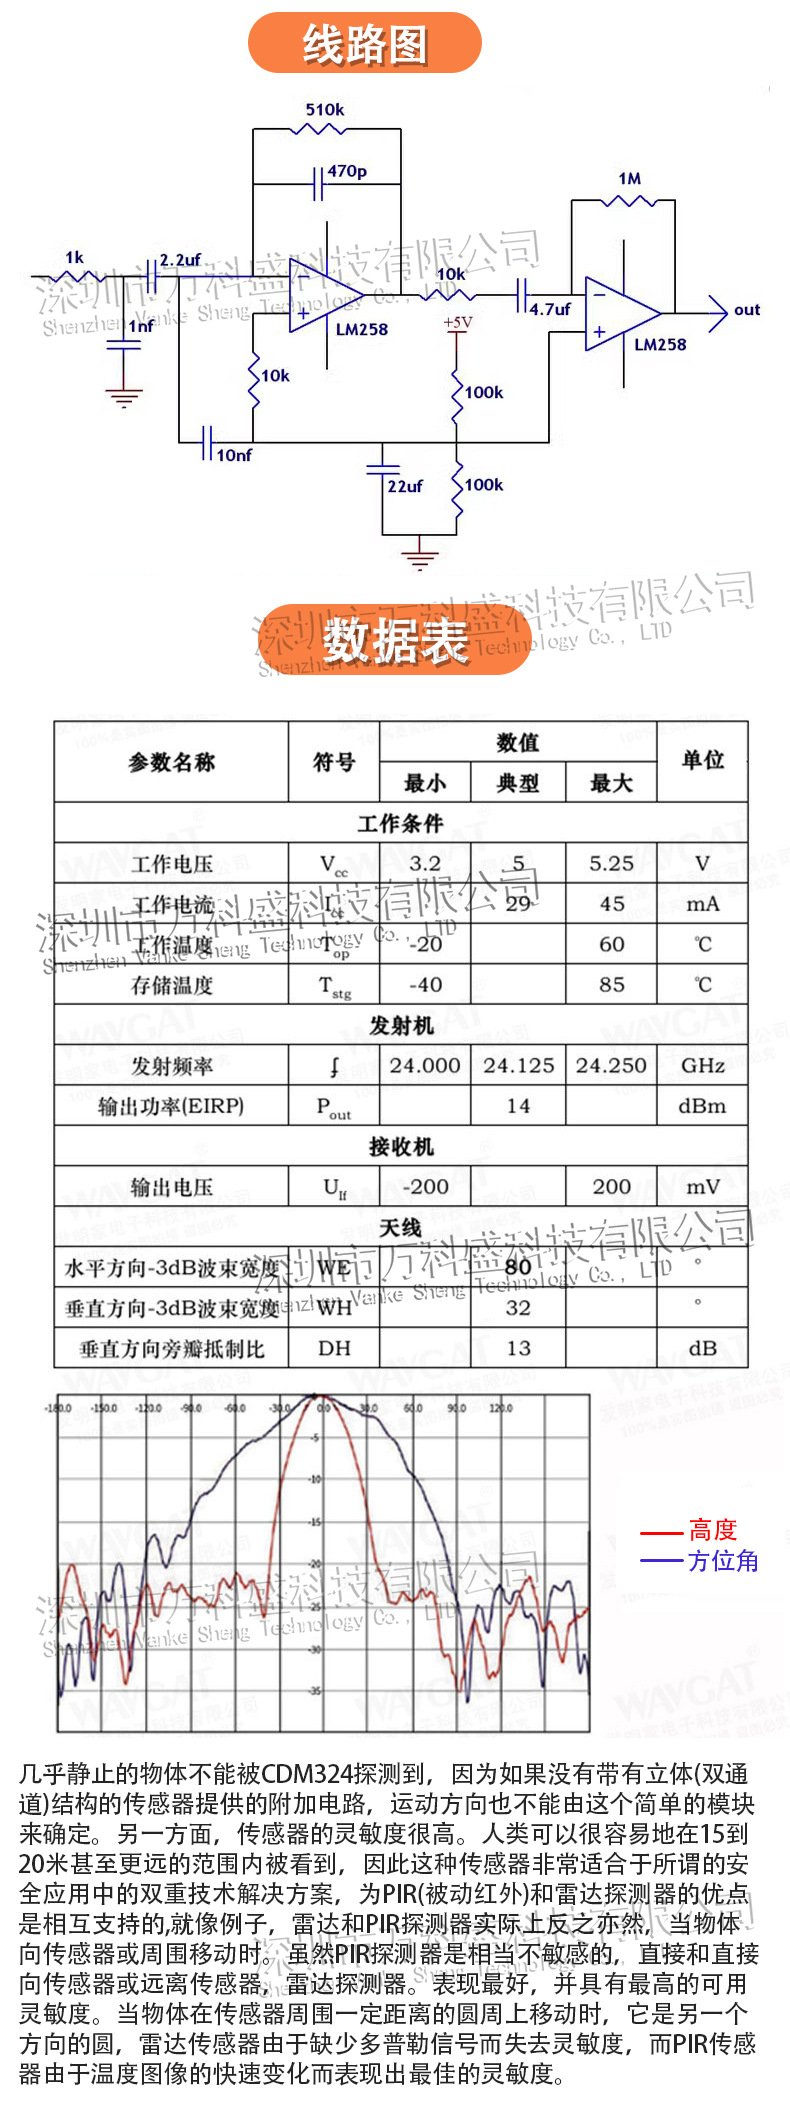 线路图
510k
470p
1M
1k
2.2uf
10k
4.7uf
out
1nf
LM258
+5V
LM258
10k
100k
10nf
22uf
100k
深圳市万科盛科技有限公司
Shenzhen Vanke Sheng Technology Co., LTD
数据表
深圳市万科盛科技有限公司
Shenzhen Vanke Sheng Technology Co., LTD
参数名称 符号 数值 单位
最小 典型 最大
工作条件
工作电压 Vcc 3.2 5 5.25 V
工作电流 Icc 29 45 mA
工作温度 Top -20 60 ℃
存储温度 Tstg -40 85 ℃
深圳市万科盛科技有限公司
Shenzhen Vanke Sheng Technology Co., LTD
发射机
发射频率 f 24.000 24.125 24.250 GHz
输出功率(EIRP) Pout 14 dBm
接收机
输出电压 UIf -200 200 mV
天线
水平方向-3dB波束宽度 WE 80 °
垂直方向-3dB波束宽度 WH 32 °
垂直方向旁瓣抵制比 DH 13 dB
深圳市万科盛科技有限公司
Shenzhen Vanke Sheng Technology Co., LTD
-180.0 -150.0 -120.0 -90.0 -60.0 -30.0 0.0 30.0 60.0 90.0 120.0
-5
-10
-15
-20
-25
-30
-35
高度
方位角
WAVGAT
深圳市万科盛科技有限公司
Shenzhen Vanke Sheng Technology Co., LTD
几乎静止的物体不能被CDM324探测到，因为如果没有带有立体(双通
道)结构的传感器提供的附加电路，运动方向也不能由这个简单的模块
来确定。另一方面，传感器的灵敏度很高。人类可以很容易地在15到
20米甚至更远的范围内被看到，因此这种传感器非常适合于所谓的安
全应用中的双重技术解决方案，为PIR(被动红外)和雷达探测器的优点
是相互支持的,就像例子，雷达和PIR探测器实际上反之亦然，当物体
向传感器或周围移动时，虽然PIR探测器是相当不敏感的，直接和直接
向传感器或远离传感器，雷达探测器。表现最好，并具有最高的可用
灵敏度。当物体在传感器周围一定距离的圆周上移动时，它是另一个
方向的圆，雷达传感器由于缺少多普勒信号而失去灵敏度，而PIR传感
器由于温度图像的快速变化而表现出最佳的灵敏度。
深圳市万科盛科技有限公司
Shenzhen Vanke Sheng Technology Co., LTD